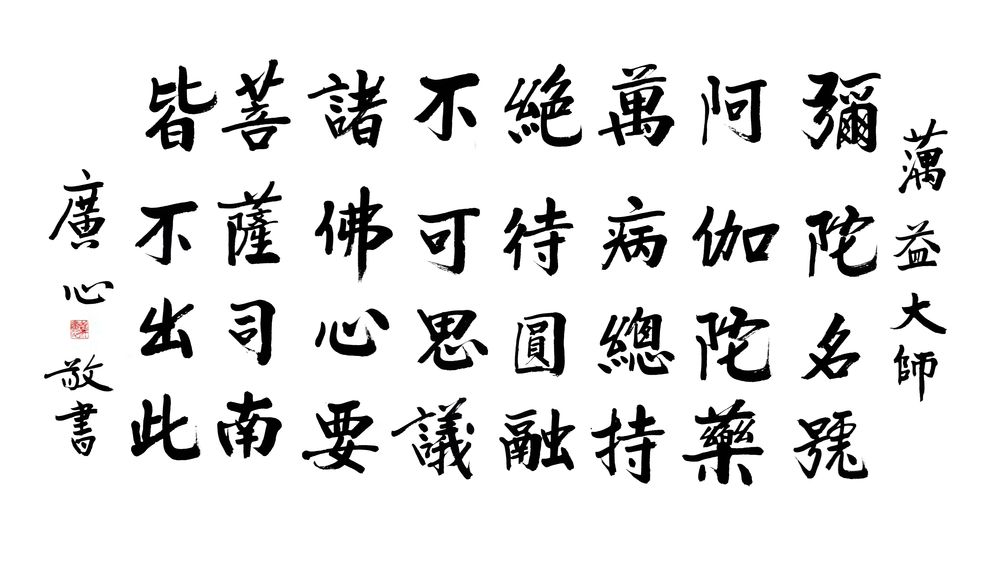 蕅益大師
彌陀名號
阿伽陀藥
萬病總持
絕待圓融
不可思議
諸佛心要
菩薩司南
皆不出此
廣心敬書